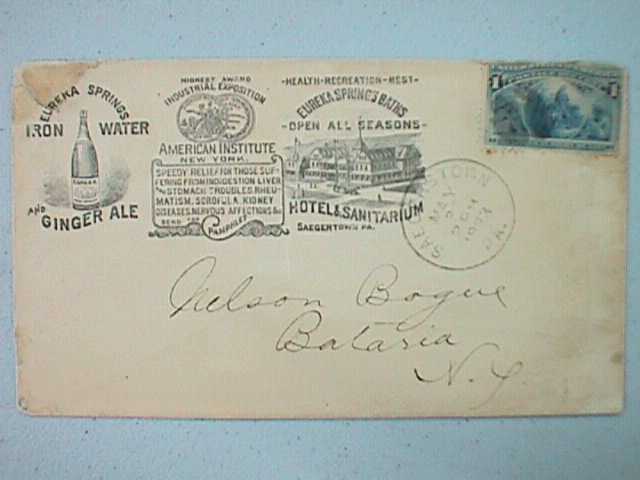 EUREKA SPRINGS
IRON WATER
AND
GINGER ALE
HIGHEST AWARD
INDUSTRIAL EXPOSITION
AMERICAN INSTITUTE
NEW YORK.
SPEEDY RELIEF FOR THOSE SUF-
FERING FROM INDIGESTION LIVER
AND STOMACH TROUBLES, RHEU-
MATISM, SCROFULA, KIDNEY
DISEASES, NERVOUS AFFECTIONS &c
SEND FOR
PAMPHLET
-HEALTH-RECREATION-REST-
EUREKA SPRINGS BATHS
-OPEN ALL SEASONS-
HOTEL & SANITARIUM
SAEGERTOWN PA.
1 1
MAY
PA.
Nelson Bogue
Batavia
N.Y.